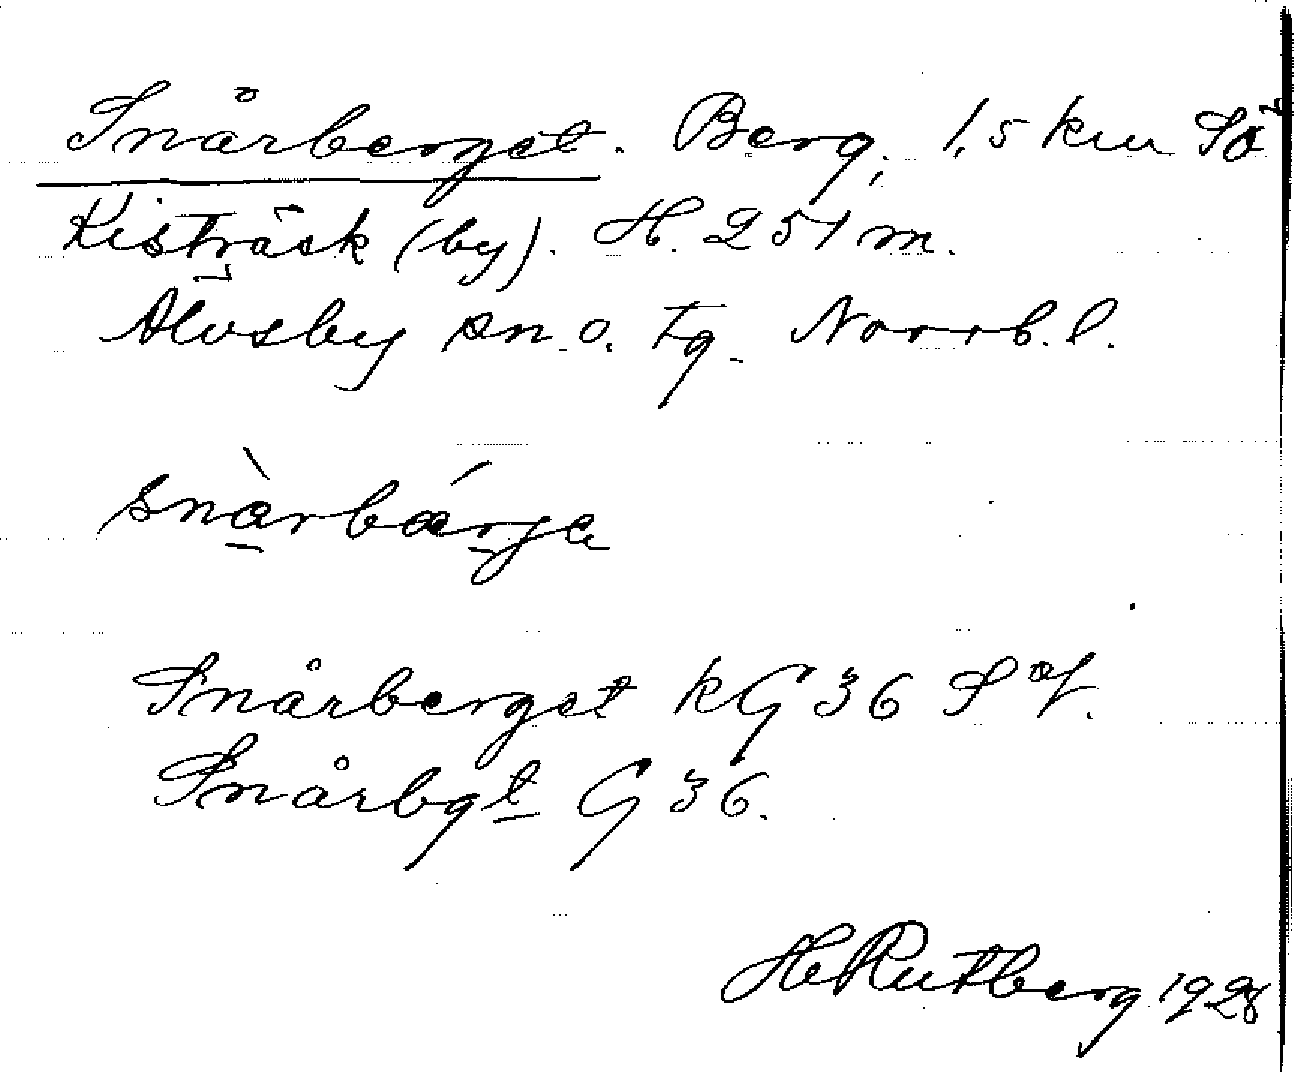 Snårberget. Berg, 1,5 km SÖ
Kisträsk (by). H. 251 m.
Älvsby sn. o. tg. Norrb. l.
snàrbǽrjɑ
Snårberget kG 36 S of.
Snårbgt G 36.
H Rutberg 1928